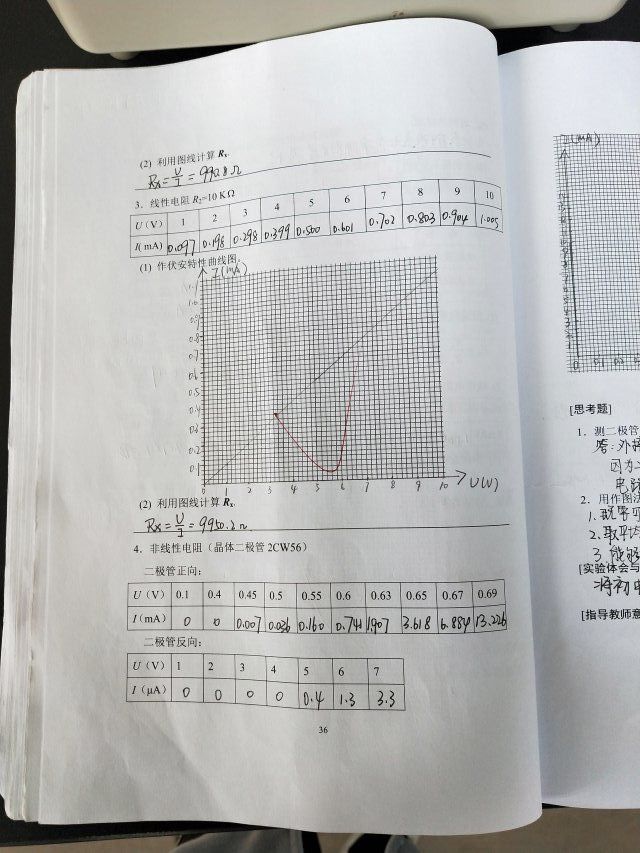 (2) 利用图线计算 Rx.
Rx = U/I = 990.8 Ω
3、线性电阻 R2=10 K Ω
U (V) 1 2 3 4 5 6 7 8 9 10
I( mA) 0.097 0.198 0.298 0.399 0.500 0.601 0.702 0.803 0.904 1.005
(1) 作伏安特性曲线图.
I(mA)
1.1
1.0
0.9
0.8
0.7
0.6
0.5
0.4
0.3
0.2
0.1
0 1 2 3 4 5 6 7 8 9 10 U(V)
(2) 利用图线计算 Rx.
Rx = U/I = 9950.2 Ω
4、非线性电阻（晶体二极管 2CW56）
二极管正向:
U (V) 0.1 0.4 0.45 0.5 0.55 0.6 0.63 0.65 0.67 0.69
I (mA) 0 0 0.007 0.036 0.160 0.741 1.907 3.618 6.884 13.226
二极管反向:
U (V) 1 2 3 4 5 6 7
I (μA) 0 0 0 0 0.4 1.3 3.3
36
I(mA)
0 0.1 0.2 0.3
[思考题]
1、测二极管
答:外接
因为
电流
2、用作图法
2.取平均
3.能够
[实验体会与
将初
[指导教师意